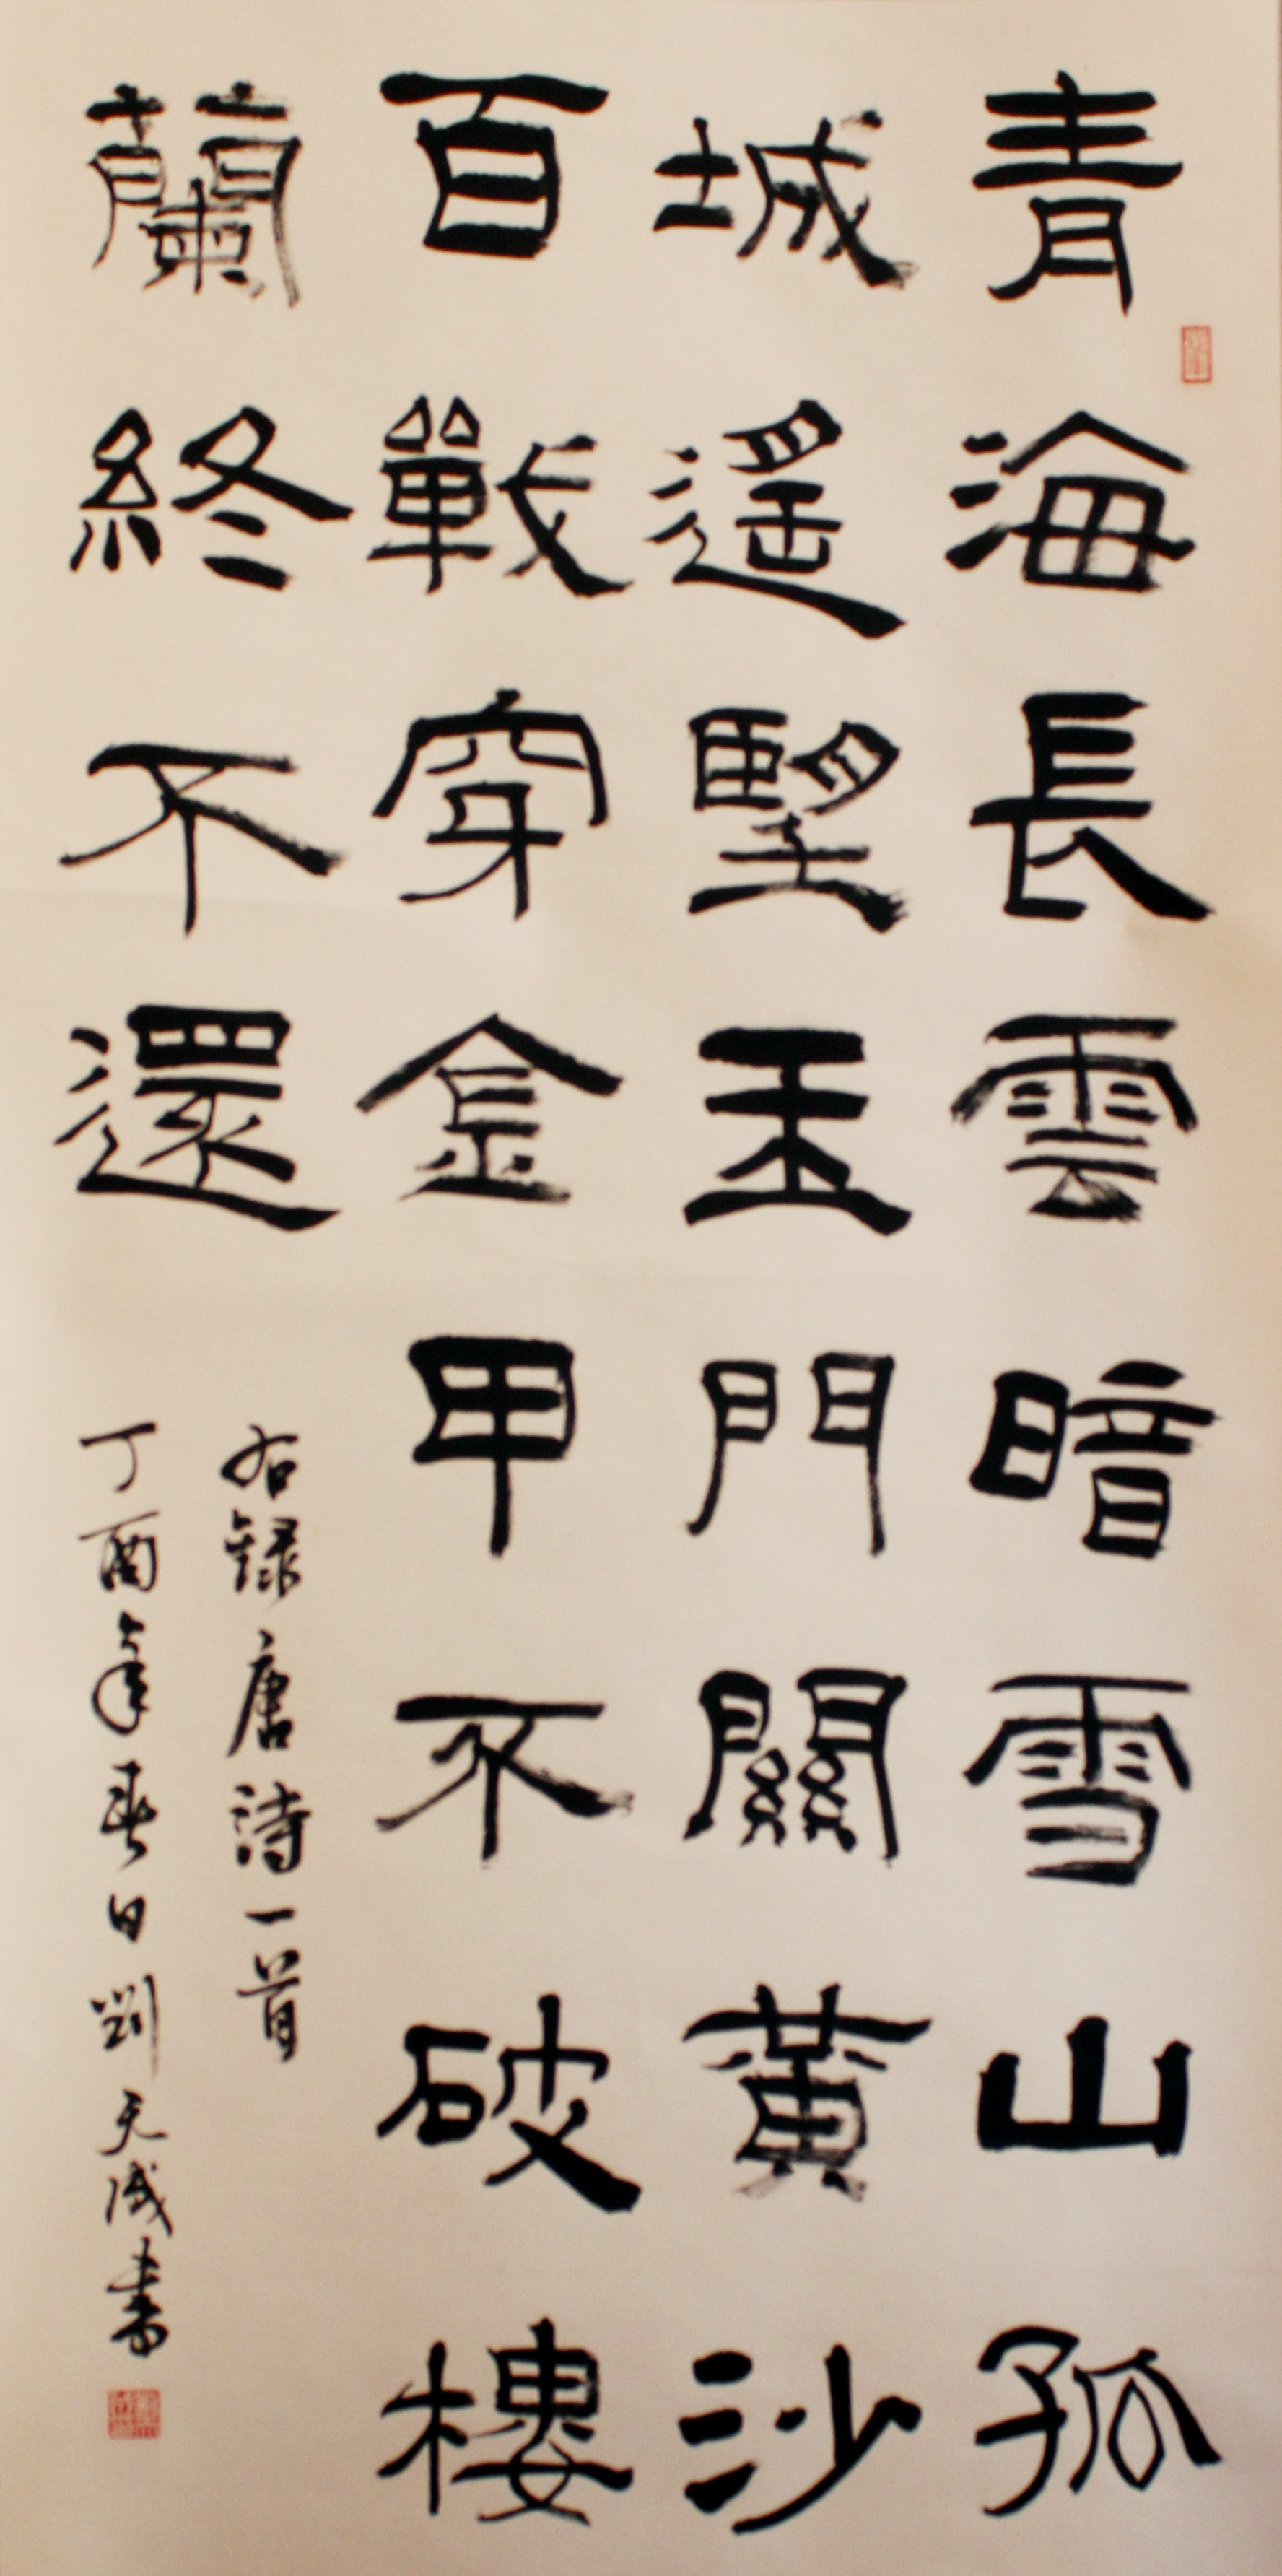 青海長雲暗雪山孤
城遥望玉門關黄沙
百戰穿金甲不破樓
蘭終不還
右録唐詩一首
丁酉年春日劉天成書